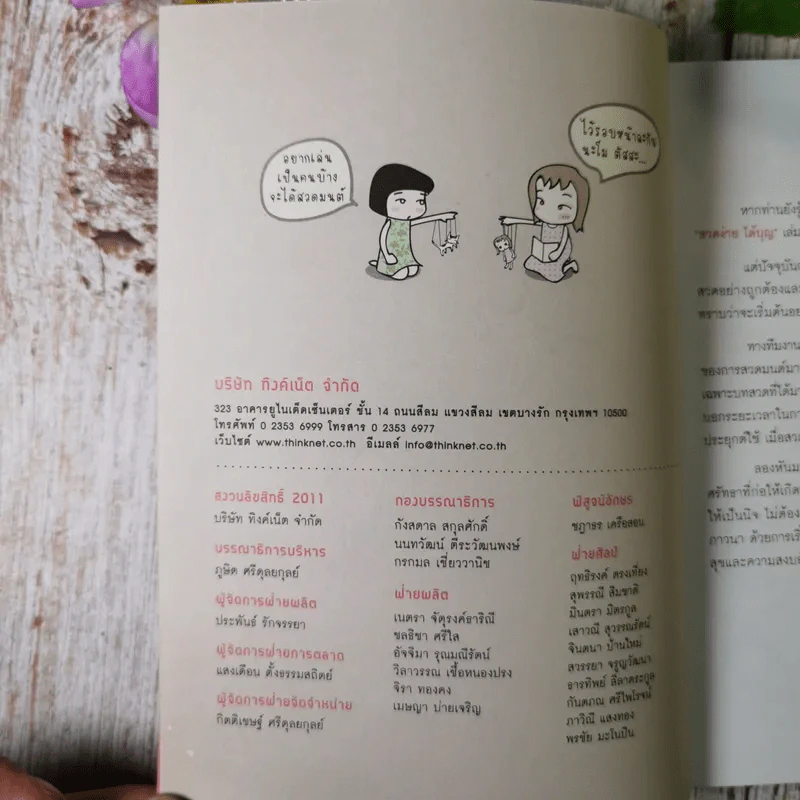 อยากเล่น
เป็นคนบ้าง
จะได้สวดมนต์
ไว้รอบหน้าละกัน
นะโม ตัสสะ...
บริษัท ทิงค์เน็ต จำกัด
323 อาคารยูไนเต็ดเซ็นเตอร์ ชั้น 14 ถนนสีลม แขวงสีลม เขตบางรัก กรุงเทพฯ 10500
โทรศัพท์ 0 2353 6999 โทรสาร 0 2353 6977
เว็บไซต์ www.thinknet.co.th อีเมลล์ info@thinknet.co.th
สงวนลิขสิทธิ์ 2011
บริษัท ทิงค์เน็ต จำกัด
บรรณาธิการบริหาร
ภูษิต ศรีดุลยกุลย์
ผู้จัดการฝ่ายผลิต
ประพันธ์ รักจรรยา
ผู้จัดการฝ่ายการตลาด
แสงเดือน ตั้งธรรมสถิตย์
ผู้จัดการฝ่ายจัดจำหน่าย
กิตติเชษฐ์ ศรีดุลยกุลย์
กองบรรณาธิการ
กังสดาล สกุลศักดิ์
นนทวัฒน์ ตีระวัฒนพงษ์
กรกมล เชี่ยววานิช
ฝ่ายผลิต
เนตรา จัตุรงค์ธาริณี
ชลธิชา ศรีใส
อัจจิมา รุณมณีรัตน์
วิลาวรรณ เชื้อหนองปรง
จิรา ทองคง
เมษญา บ่ายเจริญ
พิสูจน์อักษร
ชฎาธร เครือสอน
ฝ่ายศิลป์
ฤทธิรงค์ ตรงเที่ยง
สุพรรณี สิมชาติ
มินตรา มิตรกูล
เสาวณี สุวรรณรัตน์
จินตนา บ้านใหม่
สวรรยา จรูญวัฒนา
ธารทิพย์ ลีลาตระกูล
กันตภณ ศรีไพโรจน์
ภาวิณี แสงทอง
พรชัย มะโนปัน
หากท่านยังรู้
"สวดง่าย ได้บุญ" เล่ม
แต่ปัจจุบัน
สวดอย่างถูกต้องและ
ทราบว่าจะเริ่มต้นอย
ทางทีมงาน
ของการสวดมนต์มา
เฉพาะบทสวดที่ได้มา
บอกระยะเวลาในกา
ประยุกต์ใช้ เมื่อสวด
ลองหันมา
ศรัทธาที่ก่อให้เกิด
ให้เป็นนิจ ไม่ต้อง
ภาวนา ด้วยการเริ่
สุขและความสงบ